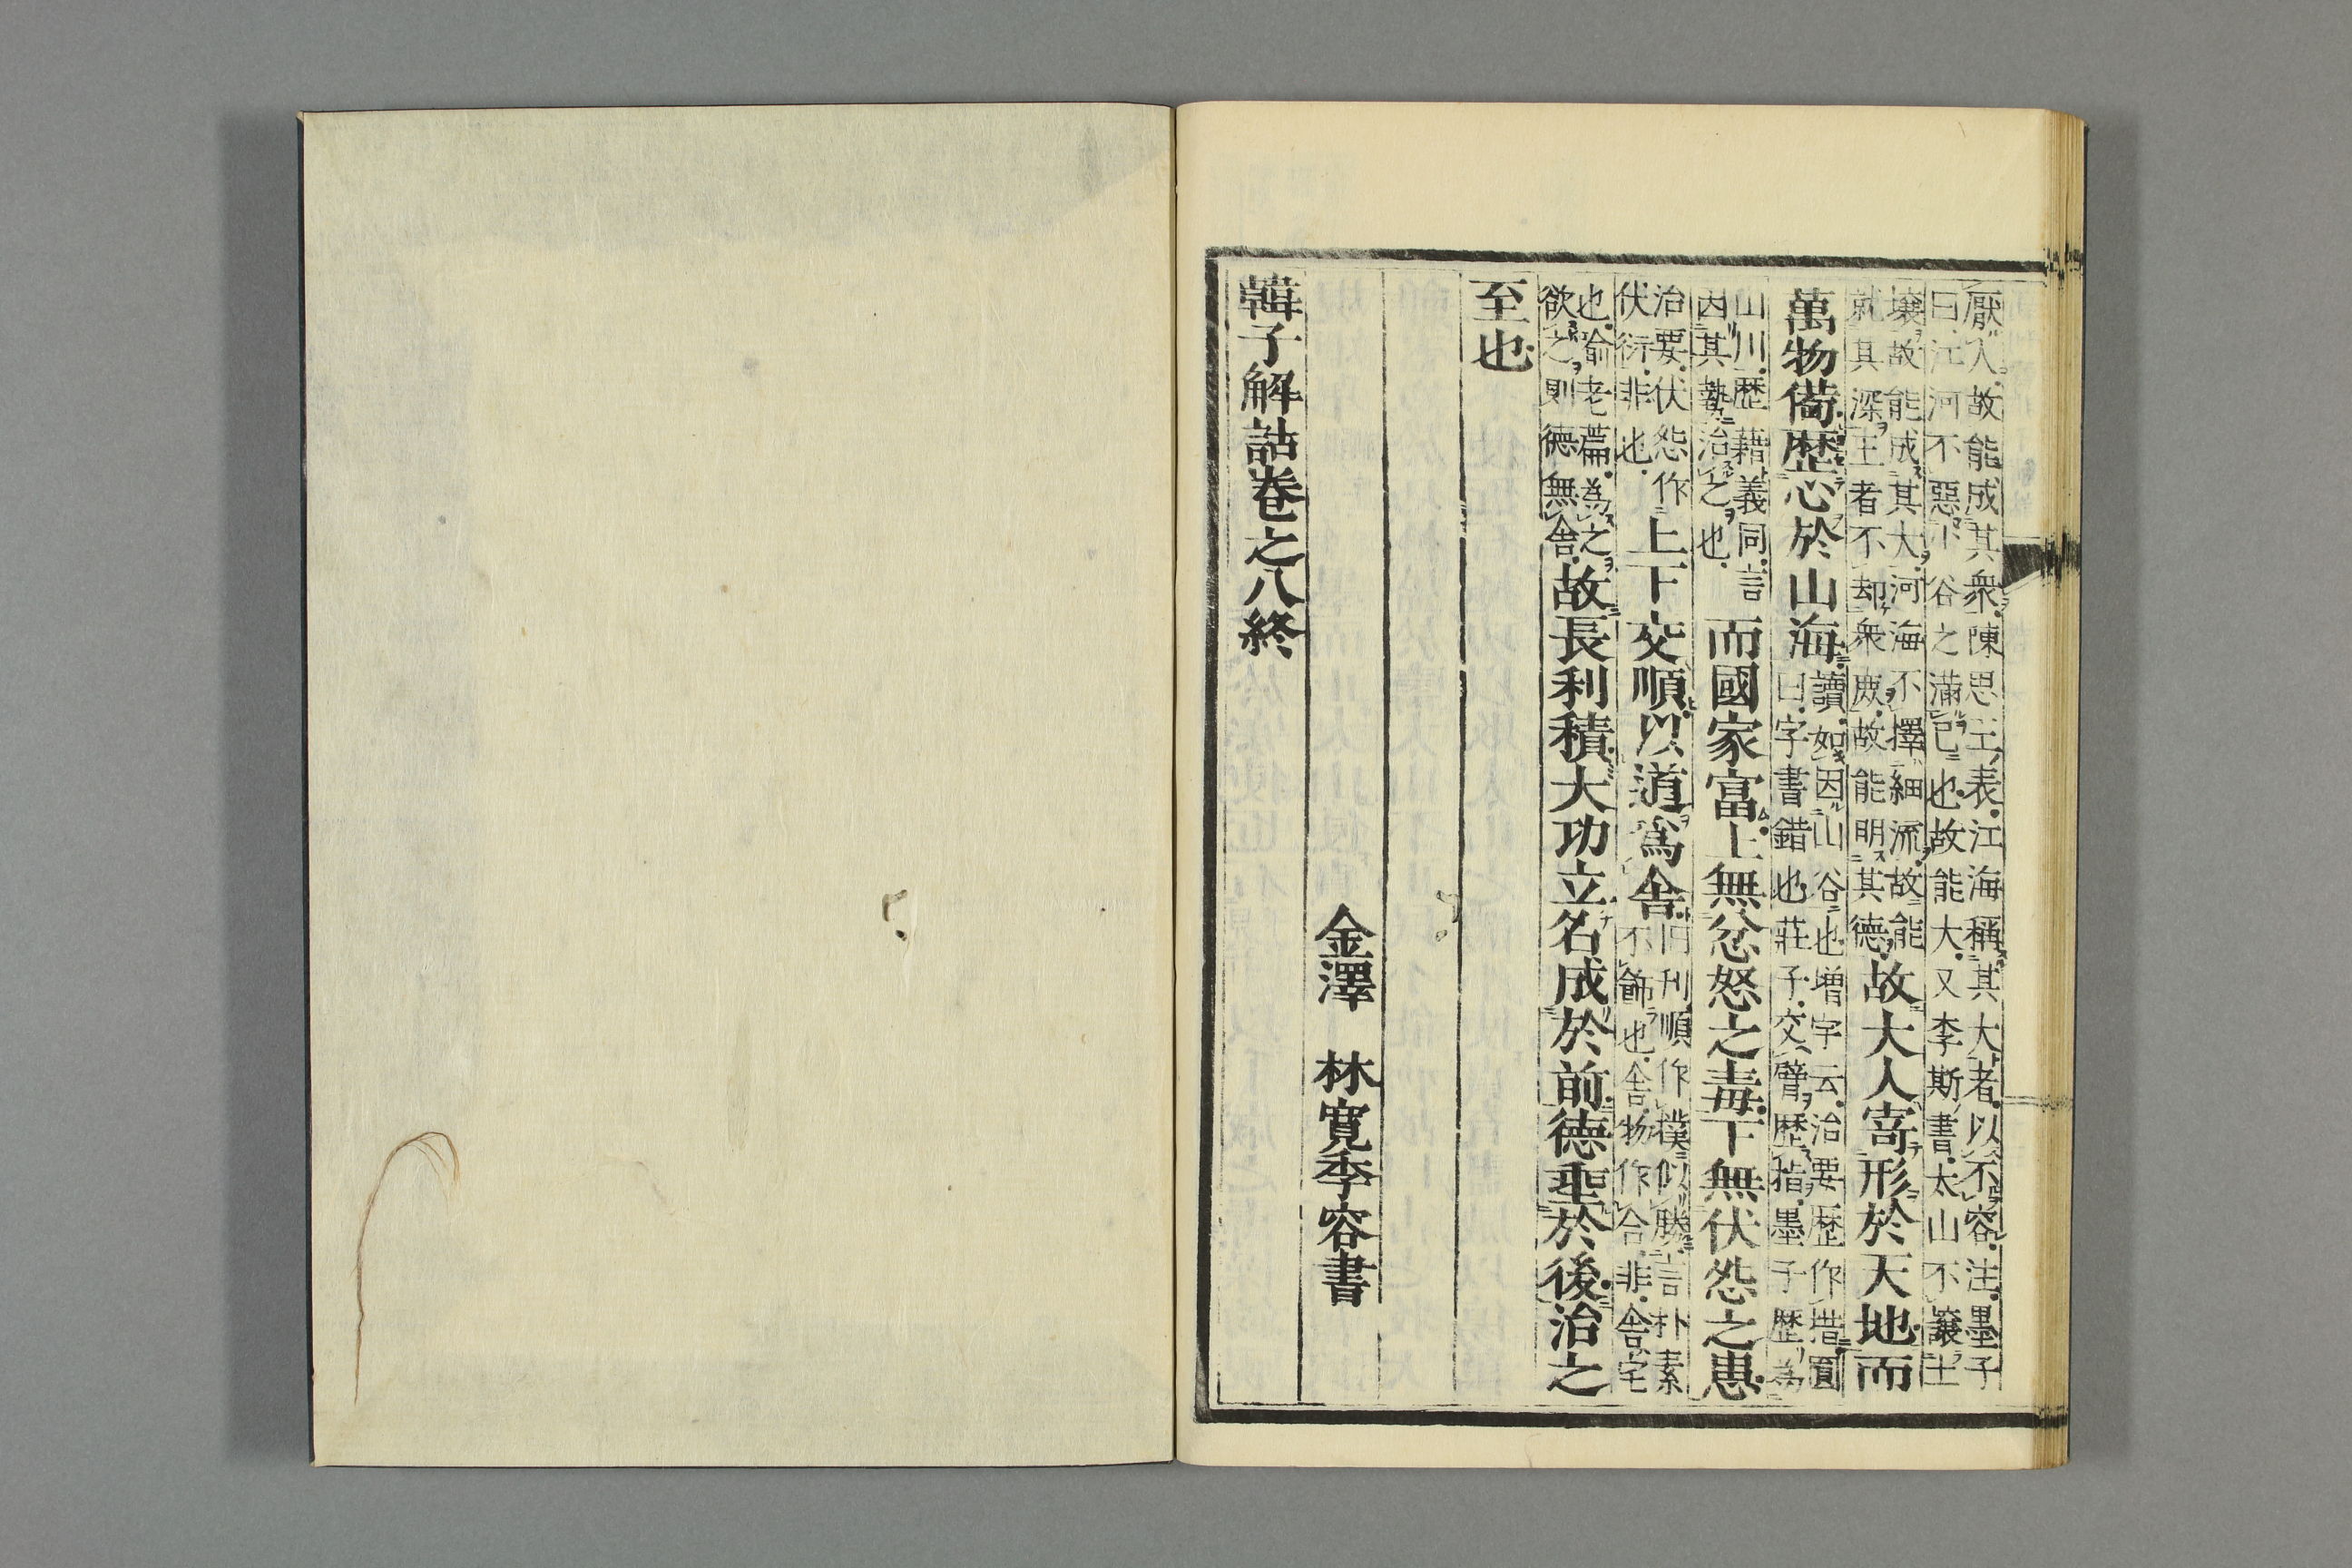 厭人故能成其衆陳思王表江海稱其大者以不容注墨子
曰江河不惡小谷之滿已也故能大又李斯書太山不讓土
壤故能成其大河海不擇細流故能
就其深王者不却衆庶故能明其德
故大人寄形於天地而
萬物備歷心於山海
讀如因山谷也増字云治要歴作措圓
曰字書錯也莊子交臂歴指墨子歴為
山川歴藉義同言
因其勢治之也
而國家富上無忿怒之毒下無伏怨之患
治要伏怨作
伏衍非也
上下交順以道爲舍
旧刋順作撲似勝言朴素
不餙也舎物作合非舎宅
也喻老篇為之
欲之則德無舎
故長利積大功立名成於前德聖於後治之
至也
金澤 林寬季容書
韓子解詁巻之八終